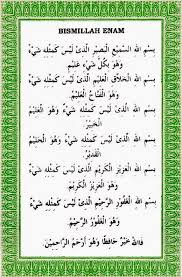 BISMILLAH ENAM
بِسْمِ اللهِ السَّمِيْعِ الْبَصِيْرِ الَّذِىْ لَيْسَ كَمِثْلِهِ شَىْءٌ
وَهُوَ بِكُلِّ شَىْءٍ عَلِيْمٌ
بِسْمِ اللهِ الْخَلَّاقِ الْعَلِيْمِ الَّذِىْ لَيْسَ كَمِثْلِهِ شَىْءٌ
وَهُوَ الْفَتَّاحُ الْعَلِيْمُ
بِسْمِ اللهِ السَّمِيْعِ الْعَلِيْمِ الَّذِىْ لَيْسَ كَمِثْلِهِ شَىْءٌ وَهُوَ الْعَلِيْمُ
الْخَبِيْرُ
بِسْمِ اللهِ السَّمِيْعِ الَّذِىْ لَيْسَ كَمِثْلِهِ شَىْءٌ وَهُوَ الْعَلِيْمُ
الْقَدِيْرُ
بِسْمِ اللهِ الْعَزِيْزِ الرَّحِيْمِ الَّذِىْ لَيْسَ كَمِثْلِهِ شَىْءٌ
وَهُوَ الْعَزِيْزُ الْكَرِيْمُ
بِسْمِ اللهِ الْغَفُوْرِ الرَّحِيْمِ الَّذِىْ لَيْسَ كَمِثْلِهِ شَىْءٌ
وَهُوَ الْغَفُوْرُ الرَّحِيْمُ
فَاللهُ خَيْرٌ حَافِظًا وَهُوَ أَرْحَمُ الرَّاحِمِيْنَ